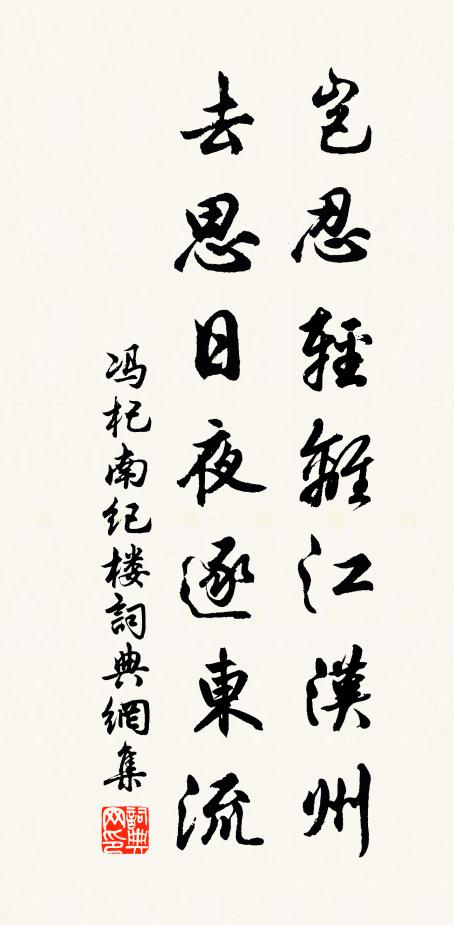 岂忍輕離江漢州
去思日夜逐東流
冯杞南纪楼詞典網集
詞典网印